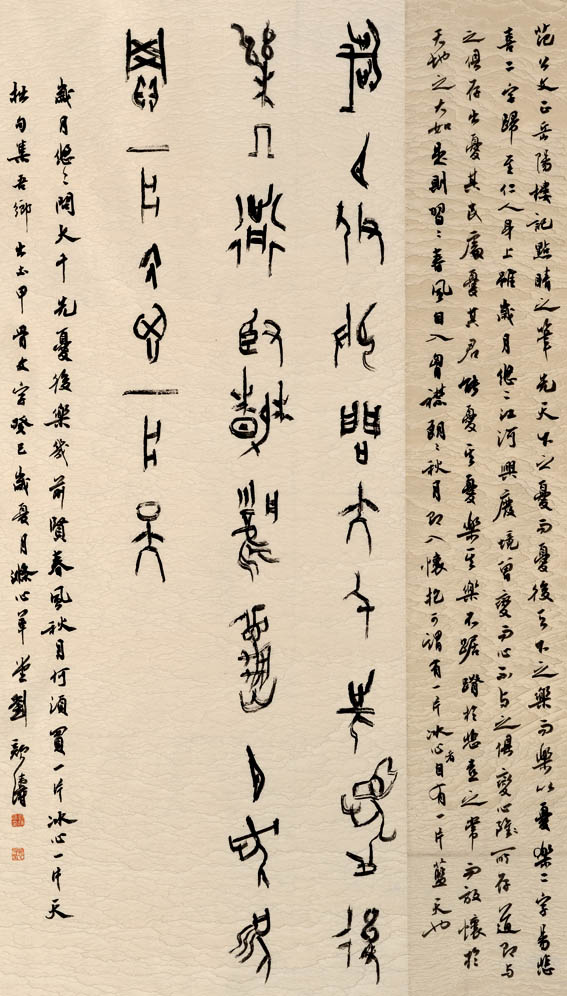 范公文正岳陽樓記點睛之筆先天下之憂而憂後天下之樂而樂以憂樂二字易悲
喜二字歸至仁人身上雖歲月悠々江河興廢境曾變而心不与之俱變心雖所存道即与
之俱存出憂其民處憂其君能憂其憂樂其樂不於悲喜之常而放懷於
天地之大如是則習々春風自入胸襟朗々秋月即入懷抱可謂有一片冰心者自有一片藍天也
歲月悠悠問大千先憂後
樂幾前賢春風秋月何須
買一片冰心一片天
歲月悠々問大千先憂後樂幾前賢春風秋月何須買一片冰心一片天
拙句集吾鄉出土甲骨文字癸巳歲夏月滌心草堂劉顏濤